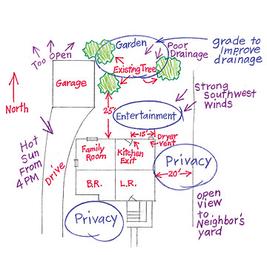 Garden
grade to
improve
drainage
Too Open
Poor
Drainage
Existing Tree
Garage
Strong
Southwest
Winds
North
25'
Entertainment
Hot
Sun
From
4PM
Drive
15'
Dryer
Vent
Family
Room
Kitchen
Exit
Privacy
20'
B.R.
L.R.
open
view
to
Neighbor's
yard
Privacy